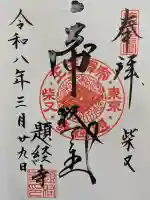 奉拝
柴又
帝釈天王
東京
柴又
令和八年三月廿九日
題経寺